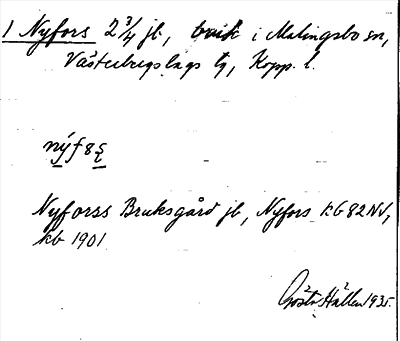 1 Nyfors 2 3/4 jb, bruk i Malingsbo sn,
Västerbergslags tg, Kopp. l.
nýf8ş
Nyforss Bruksgård jb, Nyfors kb 82 NV,
kb 1901
Gösta Hallen 1935.